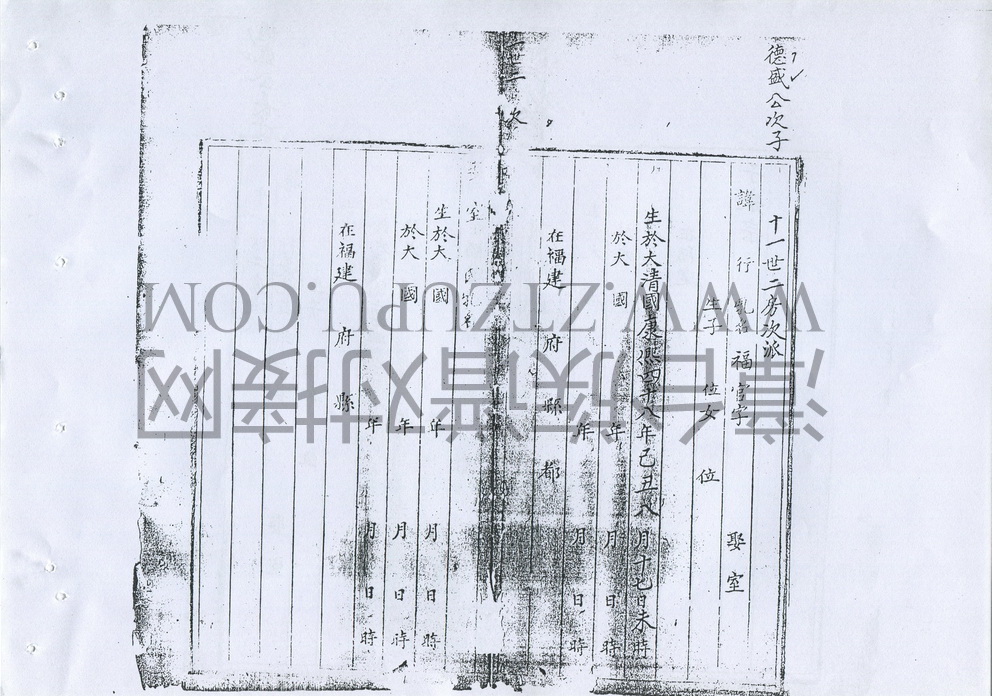 德盛公次子
十一世二房次派
諱 行 乳名 福官字 娶 室
生子 位女 位
生於大清國康熙四十八年己丑八月十七日未時
於大 國 年 月 日 時
年 月 日 時
在福建 府 縣 都
次
室 氏乳名
生於大 國 年 月 日 時
於大 國 年 月 日 時
年 月 日 時
在福建 府 縣
WWW.ZTZUPU.COM
漳台族谱对接网